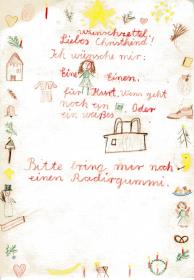 wunschzettel.
Liebes Christkind!
Ich wünsche mir:
Eine Einen.
für Kurt, Wenn geht
noch ein Oder
ein weißes
Bitte bring mir noch
einen Radirgummi.